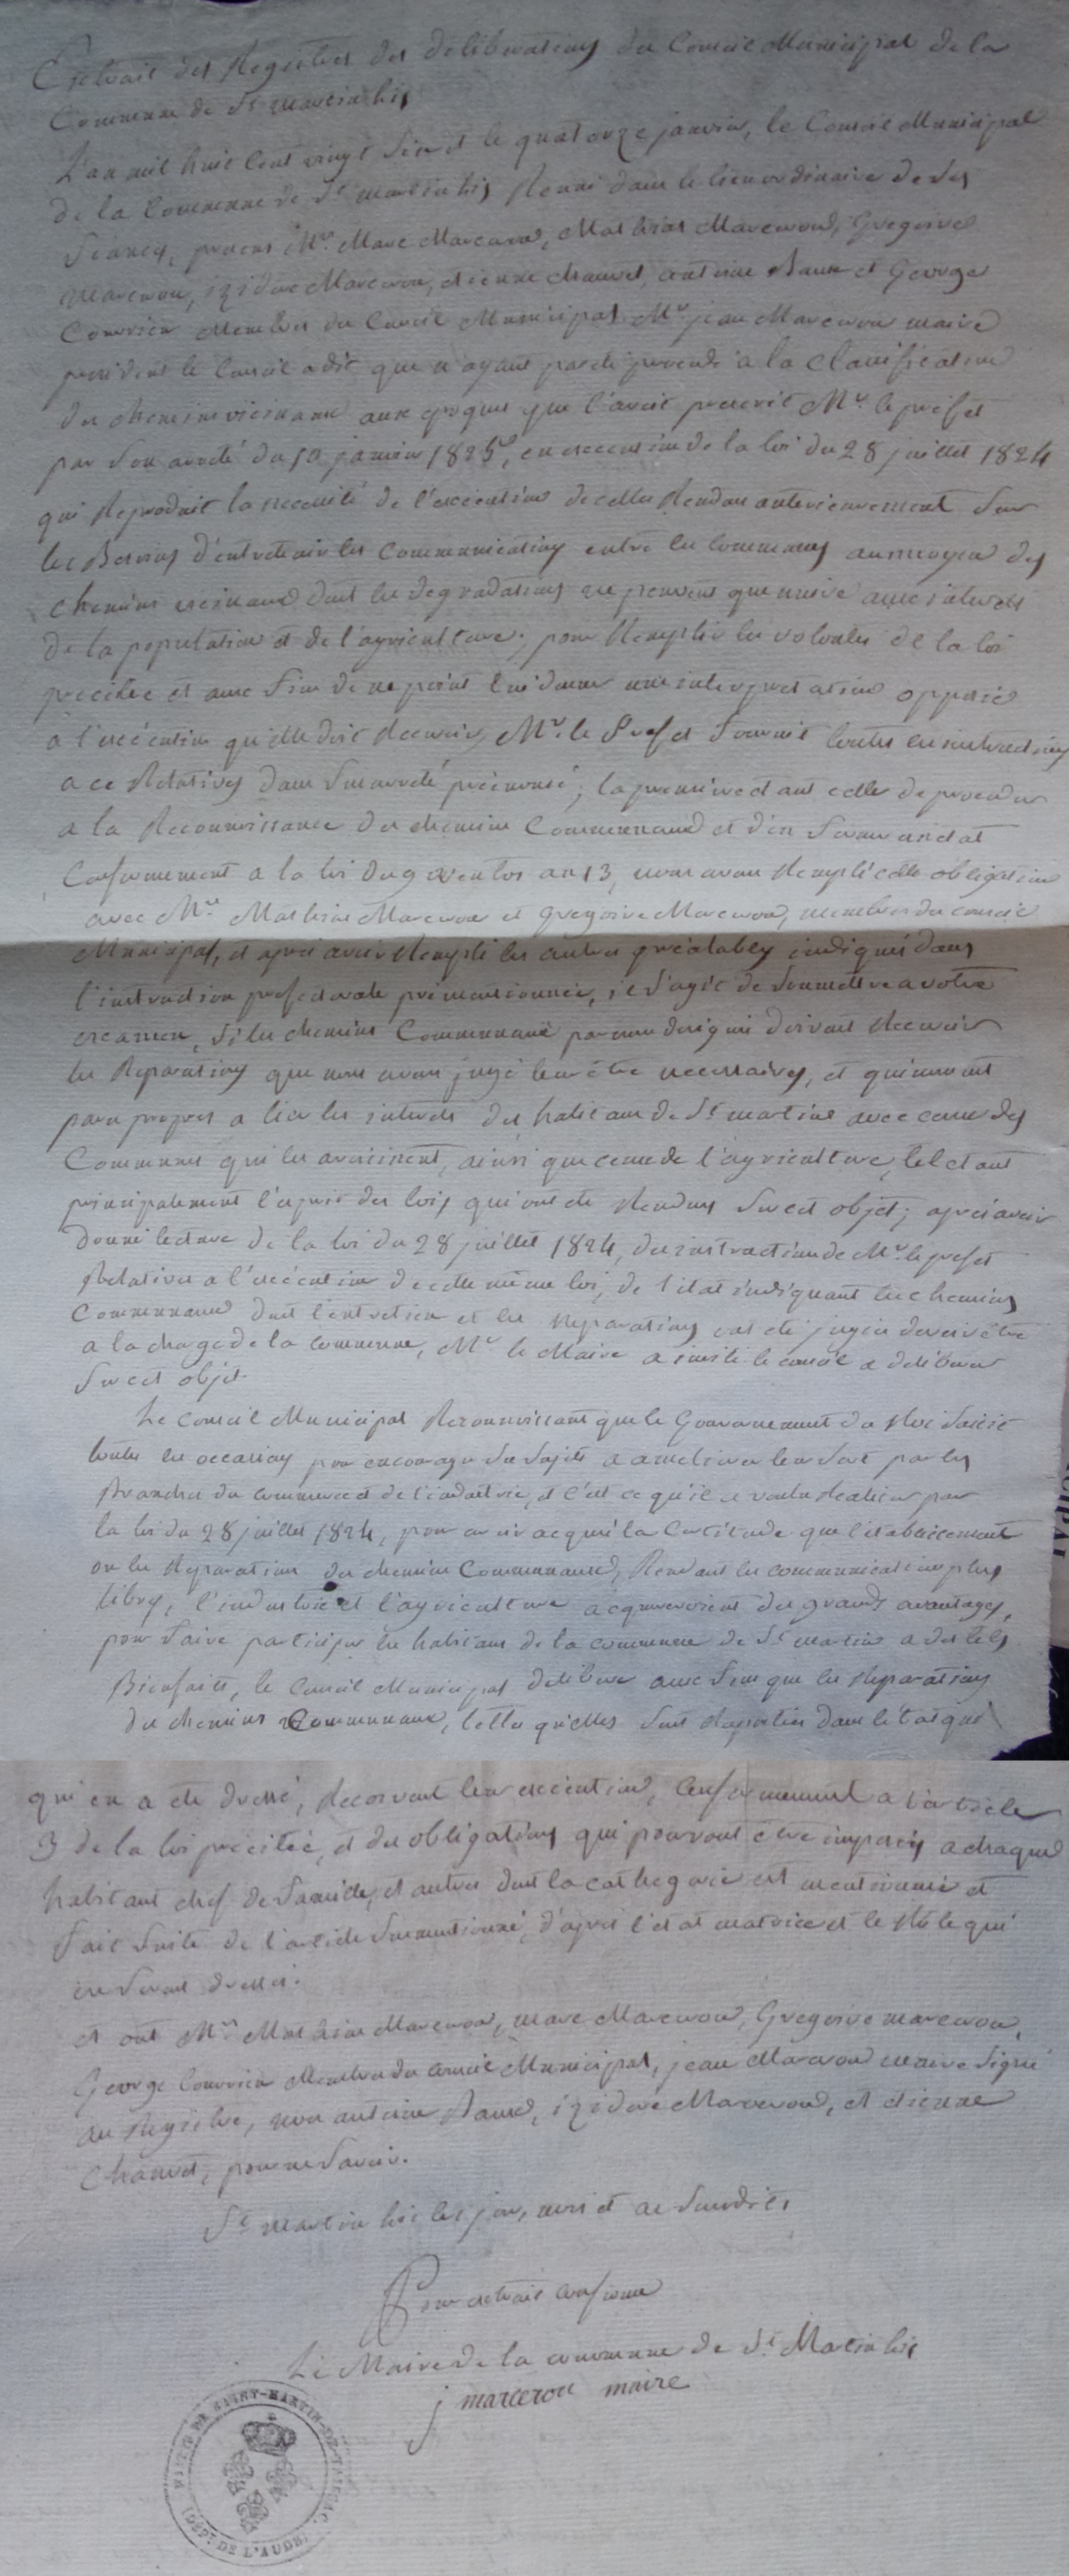 Extrait des Registres des deliberations du Conseil Municipal de la
Commune de St martin lis
L'an mil huit cent vingt six et le quatorze janvier, le Conseil Municipal
de la Commune de St martin lis Reuni dans le lieu ordinaire de ses
Seances, presens Mrs Marc Marcerou, Mathias Marcerou, Gregoire
Marcerou, izidore Marcerou, etienne chauvet, antoine Baux et George
Courrieu Membres du Conseil Municipal Mr jean Marcerou maire
president le Conseil a dit que n'ayant pas été procedé a la Classification
des chemins vicinaux aux epoques que l'avait prescrit Mr le prefet
par son arreté du 10 janvier 1825, en execution de la loi du 28 juillet 1824
qui Reproduit la necessité de l'execution de celles Rendues anterieurement Sur
les Besoins d'entretenir les Communications entre les communes au moyen des
chemins vicinaux dont les degradations ne peuvent que nuire aux interets
de la population et de l'agriculture; pour Remplir les volontés de la loi
precitée et aux fins de ne point lui donner une interpretation opposée
à l'exécution qu'elle doit Recevoir, Mr le Prefet fournit toutes les instructions
a ce Relatives dans son arreté précénoncé; la premiere etant celle de proceder
a la Reconnoissance des chemins Communaux et d'en former un etat
Conformement a la loi du 9 ventos an 13, nous avons Rempli cette obligation
avec Mrs Mathias Marcerou et Gregoire Marcerou, membres du conseil
Municipal, et aprés avoir Rempli les autres préalables indiqués dans
l'instruction prefectorale prémentionnée, il s'agit de soumettre a votre
examen, si les chemins Communaux par nous designés doivent Recevoir
les Reparations que nous avons jugé leur être necessaires, et qui nous ont
paru propres a lier les interets des habitans de St martin avec ceux des
Communes qui les avoisinent, ainsi que ceux de l'agriculture, tel etant
principalement l'esprit des lois qui ont été Rendues Sur cet objet; aprés avoir
donné lecture de la loi du 28 juillet 1824, des instructions de Mr le prefet
Relatives a l'exécution de cette même loi, de l'état indiquant les chemins
Communaux dont l'entretien et les Reparations ont été jugées devoir être
a la charge de la commune, Mr le Maire a invité le conseil a deliberer
Sur cet objet.
Le Conseil Municipal Reconnoissant que le Gouvernement du Roi saisit
toutes les occasions pour encourager ses sujets a ameliorer leur sort par les
Branches du commerce et de l'industrie, et c'est ce qu'il a voulu Realiser par
la loi du 28 juillet 1824, pour avoir acquis la Certitude que l'etablissement
ou les Reparations des chemins Communaux, Rendant les communications plus
libres, l'industrie et l'agriculture acquerroient des grands avantages,
pour faire participer les habitans de la commune de St martin a des tels
Bienfaits, le Conseil Municipal delibere aux fins que les Reparations
des chemins Communaux, telles qu'elles sont Raportées dans l'état que
qui en a été dressé, Recoivent leur exécution, Conformement a l'article
3 de la loi précitée, et des obligations qui pourront être imposées a chaque
habitant chef de famille, et autres dont la cathegorie est mentionnée et
fait suite de l'article susmentionné, d'aprés l'état matrice et le Role qui
en seront dressés.
et ont Mrs Mathias Marcerou, marc Marcerou, Gregoire marcerou,
George Courrieu Membres du Conseil Municipal, jean Marcerou maire signé
au Registre, non antoine Baux, izidore Marcerou, et etienne
Chauvet, pour ne savoir.
St martin lis les jour, mois et an susdits.
Pour extrait conforme
Le Maire de la commune de St Martin lis
j marcerou maire
MAIRIE DE SAINT-MARTIN-DE-TAISSAC.
(DEPT. DE L'AUDE)